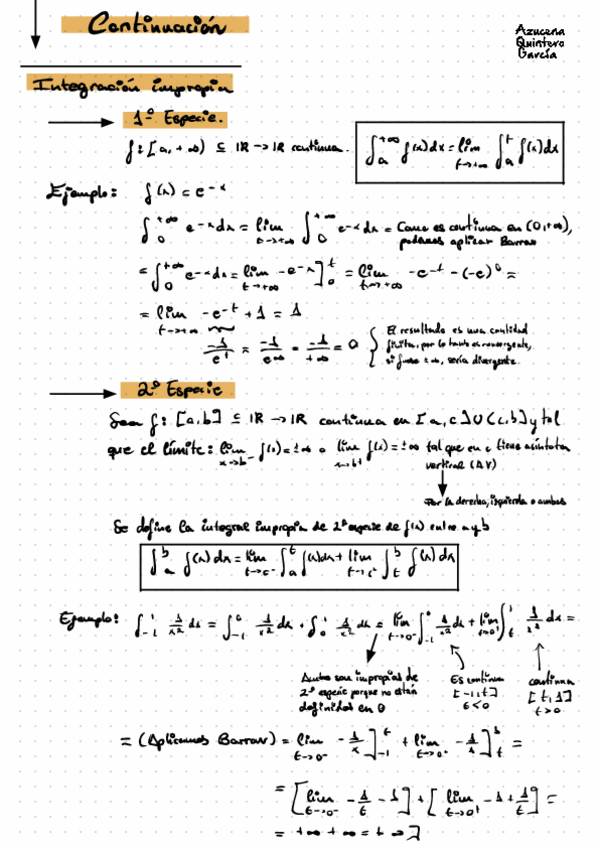 Continuación
Azucena
Quintero
García
Integración impropia
1º Especie.
f: [a, +∞) ⊆ IR → IR continua. ∫_a^{+∞} f(x)dx = lim_{t→+∞} ∫_a^t f(x)dx
Ejemplo: f(x) = e^{-x}
∫_0^{+∞} e^{-x}dx = lim_{t→+∞} ∫_0^{+∞} e^{-x}dx = Como es continua en (0,+∞),
podemos aplicar Barrow
= ∫_0^{+∞} e^{-x}dx = lim_{t→+∞} -e^{-x}]_0^t = lim_{t→+∞} -e^{-t} - (-e)^0 =
= lim_{t→+∞} -e^{-t} + 1 = 1
-1/e^t = -1/e^∞ = -1/+∞ = 0
El resultado es una cantidad
finita, por lo tanto es convergente,
si fuese +∞, sería divergente.
2º Especie
Sea f: [a,b] ⊆ IR → IR continua en [a,c] U (c,b] y tal
que el límite: lim_{x→b^-} f(x) = ±∞ o lim_{x→b^+} f(x) = ±∞ tal que en c tiene asíntota
vertical (AV)
Por la derecha, izquierda o ambas
Se define la integral impropia de 2º especie de f(x) entre a y b
∫_a^b f(x)dx = lim_{t→c^-} ∫_a^t f(x)dx + lim_{t→c^+} ∫_t^b f(x)dx
Ejemplo: ∫_{-1}^1 1/x² dx = ∫_{-1}^0 1/x² dx + ∫_0^1 1/x² dx = lim_{t→0^-} ∫_{-1}^t 1/x² dx + lim_{t→0^+} ∫_t^1 1/x² dx =
Ambas son impropias de
2º especie porque no están
definidas en 0
Es continua
[-1,t]
t<0
continua
[t,1]
t>0
= (Aplicamos Barrow) = lim_{t→0^-} -1/x]_{-1}^t + lim_{t→0^+} -1/x]_t^1 =
= [lim_{t→0^-} -1/t - 1] + [lim_{t→0^+} -1 + 1/t] =
= +∞ +∞ = +∞]